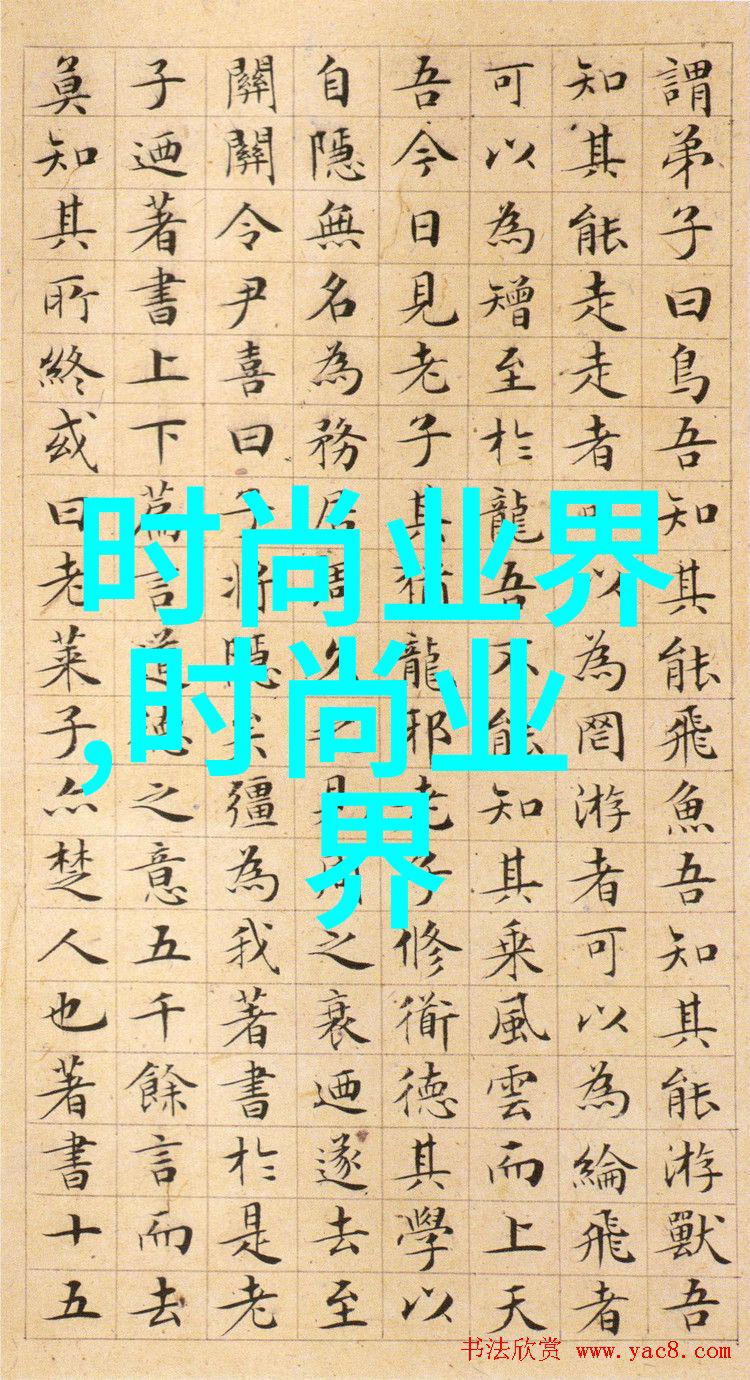 謂弟子曰鳥吾知其能飛魚吾知其能游獸吾
知其能走走者可以為罔游者可以為綸飛者
可以為矰至於龍吾不能知其乗風雲而上天
吾今日見老子其猶龍邪老子修衜德其學以
自隱無名為務居周久之見周之衰迺遂去至
關關令尹喜曰子將隱矣彊為我著書於是老
子迺著書上下篇言道德之意五千餘言而去
莫知其所終或曰老萊子亦楚人也著書十五
时尚业界
,时尚业
界
书法欣赏 www.yac8.com